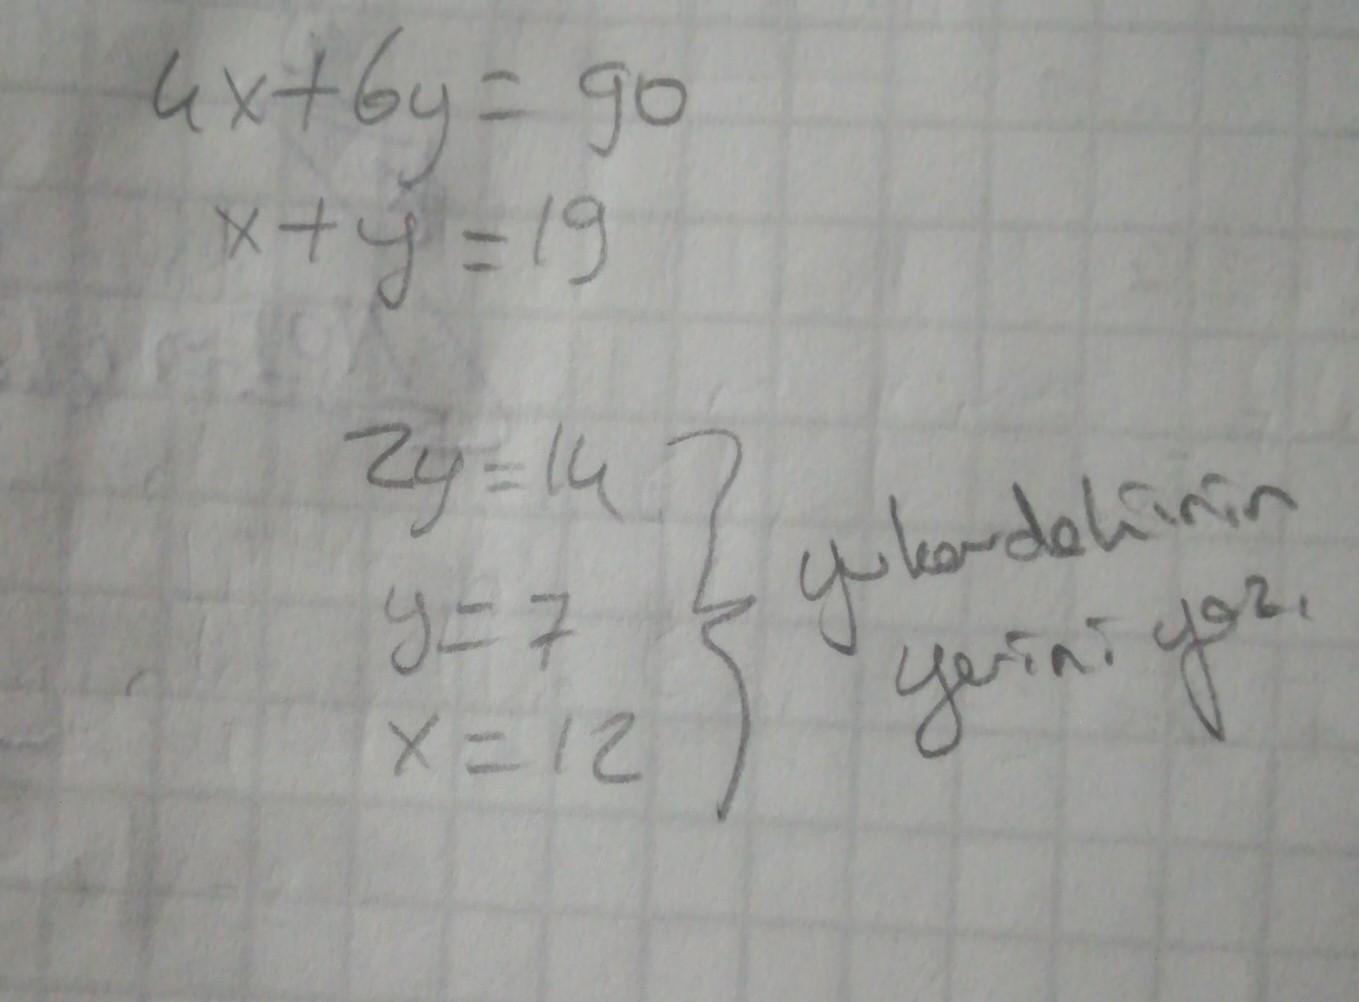 4x+6y=90
x+y=19
2y=14
y=7
x=12
yukardakinin
yerini yaz.